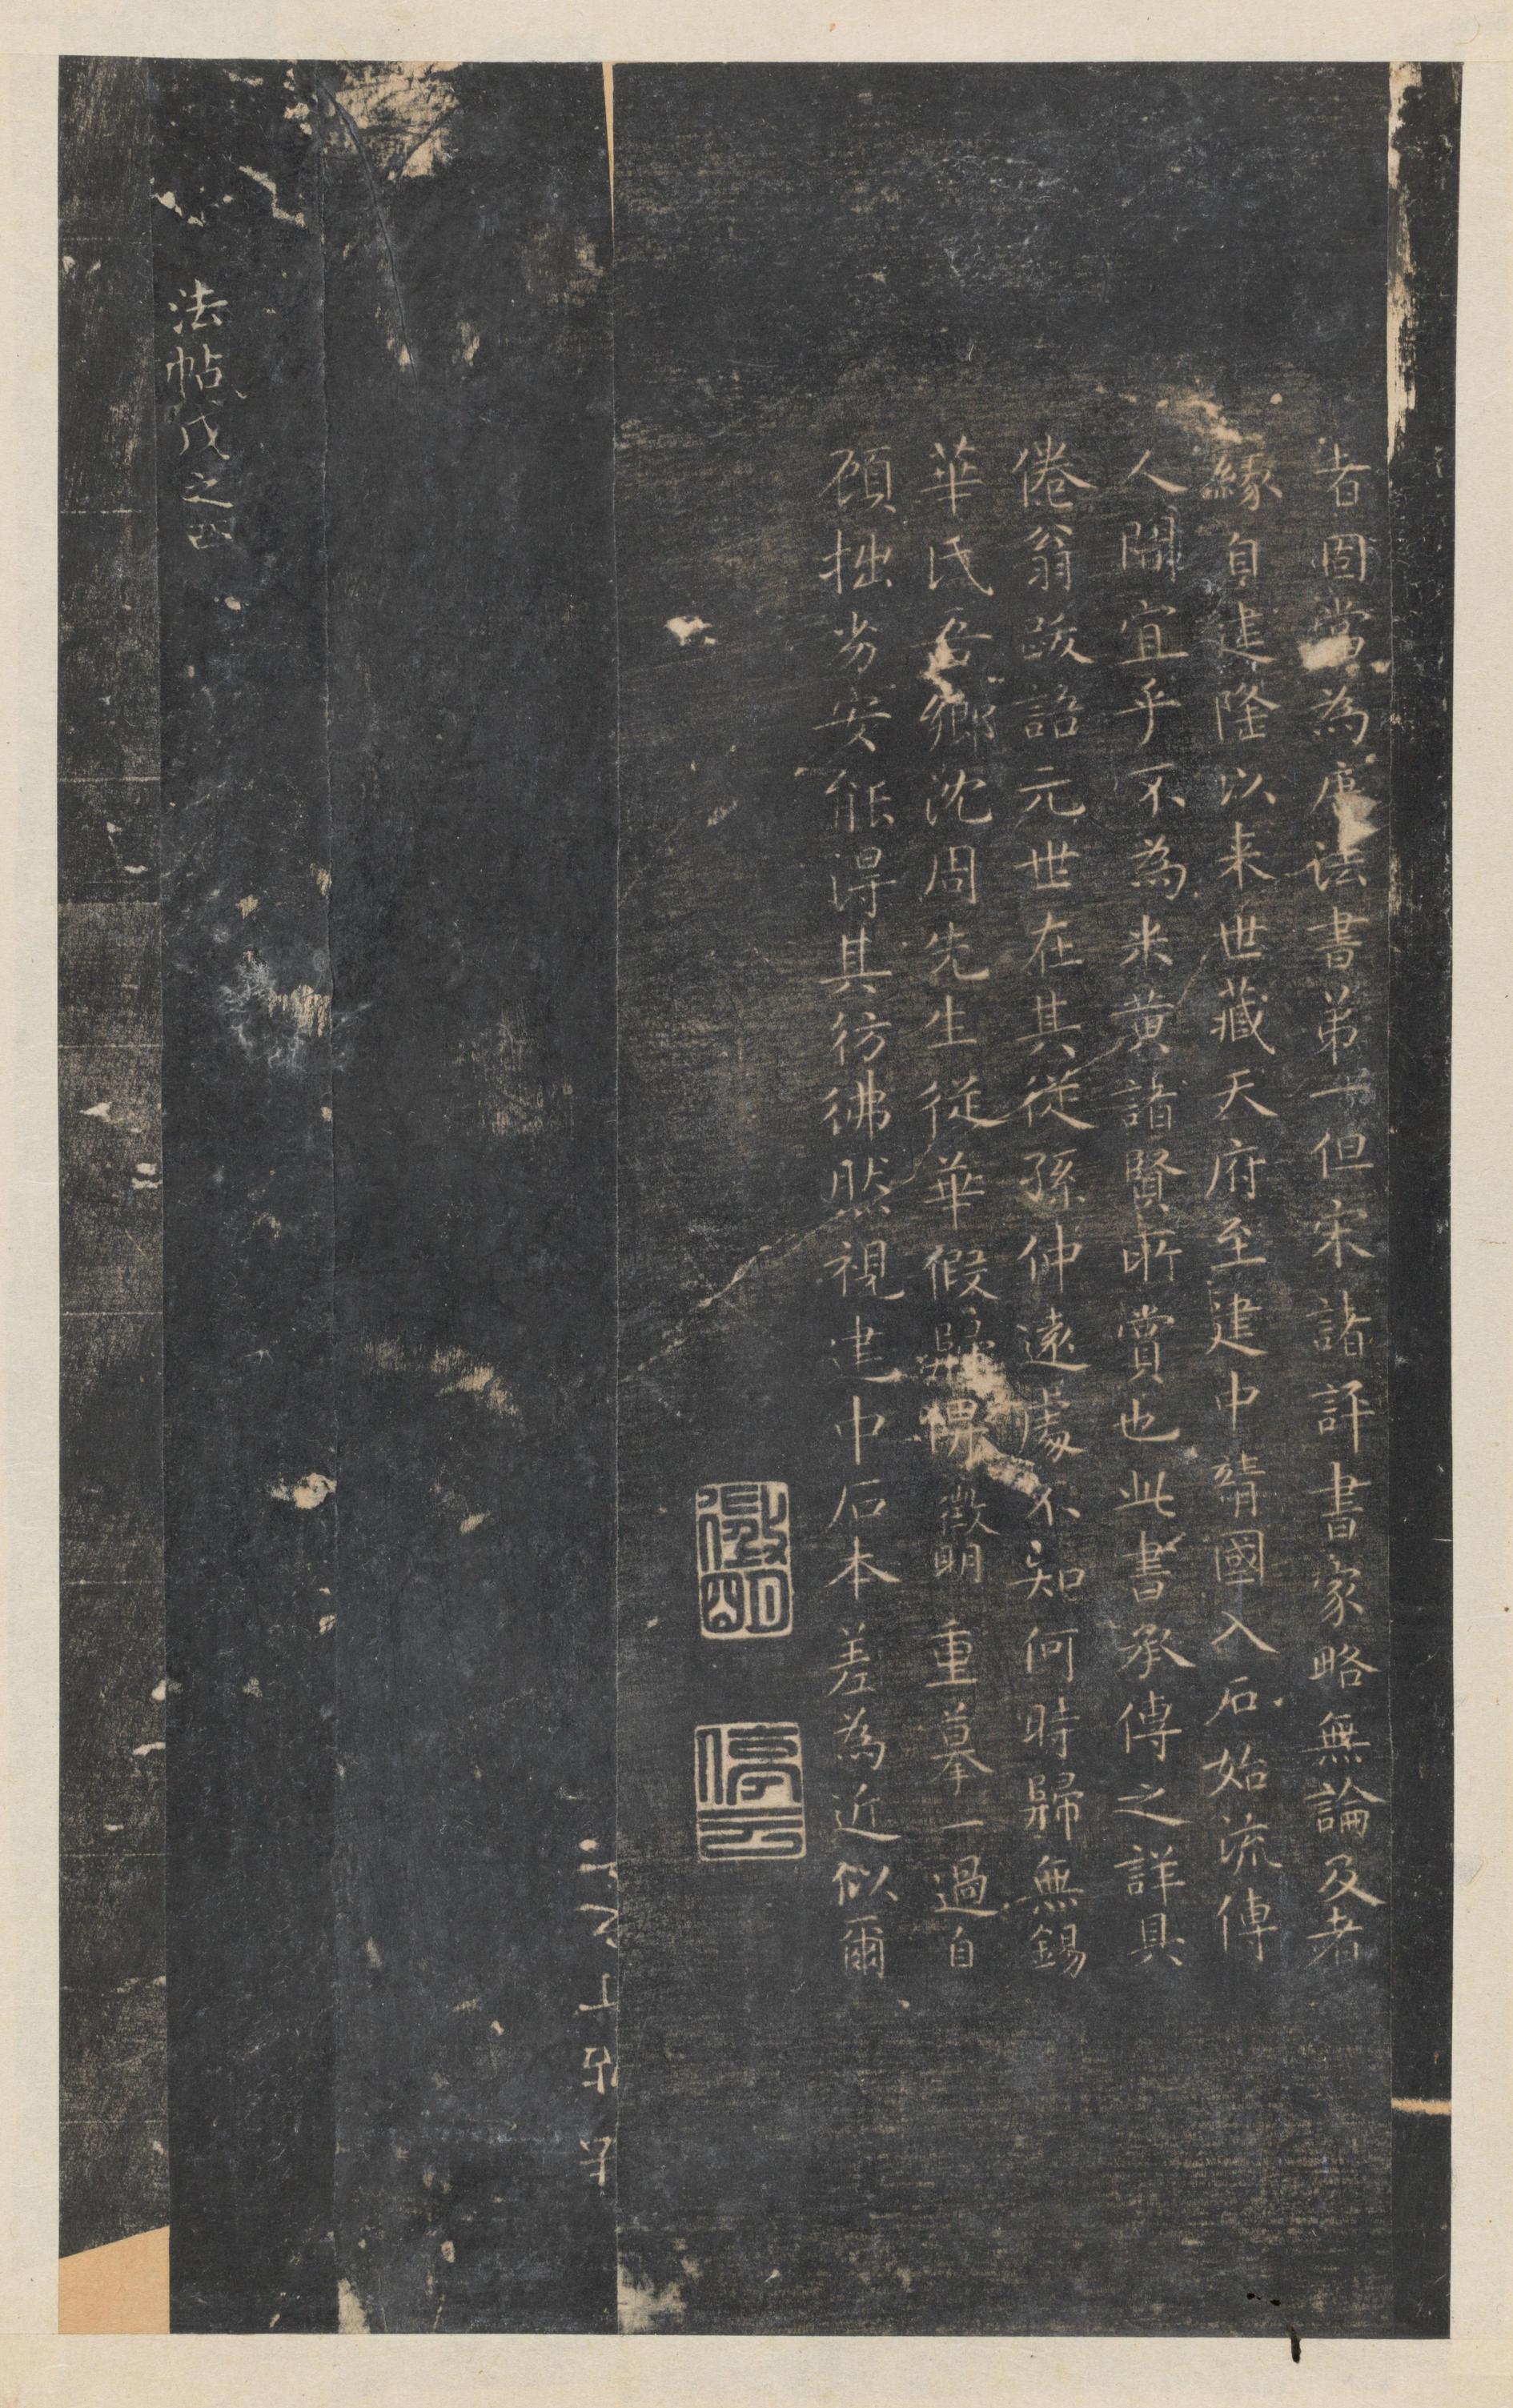 者固當為唐法書第一但宋諸評書家略無論及者
緣自建隆以来世藏天府至建中靖國入石始流傳
人間宜乎不為米黄諸賢所賞也此書承傳之詳具
倦翁跋語元世在其從孫仲遠處不知何時歸無錫
華氏吾鄉沈周先生従華假歸俾徵明重摹一過自
顧拙劣安能得其彷彿然視建中石本差為近似爾
徵明
停云
法帖戊之四